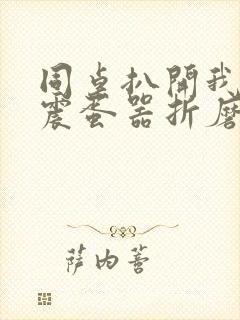 同桌扒開我
震蛋器折磨
薩內菩